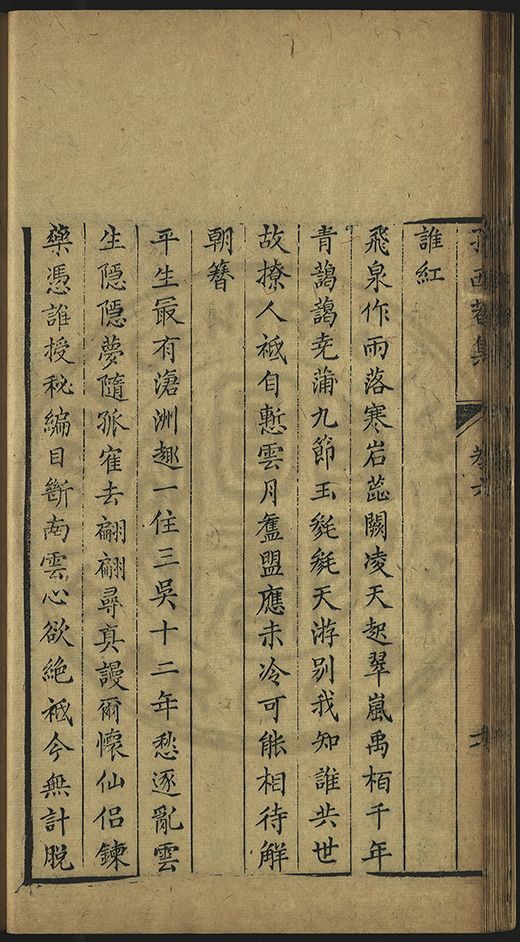 孫西菴集 卷六
誰紅
飛泉作雨落寒岩蕊闕凌天起翠嵐禹栢千年
青藹藹尭蒲九節玉毿毿天游别我知誰共世
故撩人祗自慙雲月舊盟應未冷可能相待解
朝簪
平生最有滄洲趣一住三吳十二年愁逐亂雲
生隱隱夢隨孤隺去翩翩尋真謾爾懷仙侣鍊
藥憑誰授秘編目斷南雲心欲絶祗今無計脫